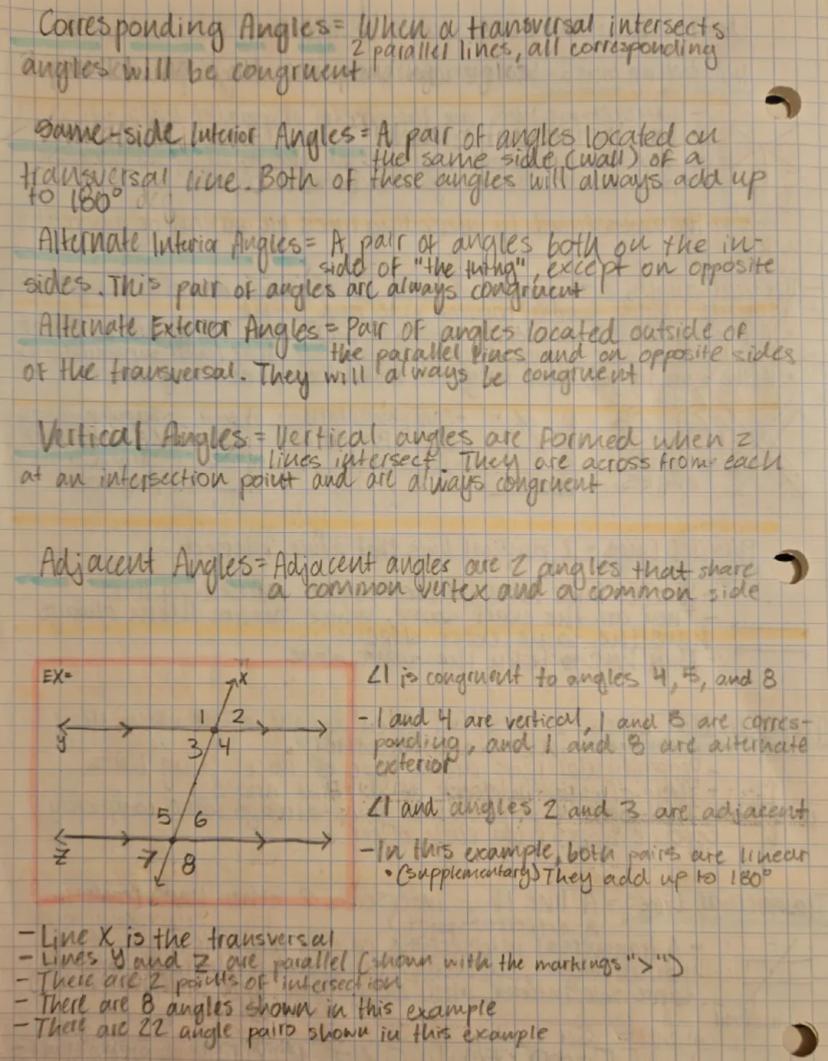 Corresponding Angles = When a transversal intersects
2 parallel lines, all corresponding
angles will be congruent
Same-side Interior Angles = A pair of angles located on
the same side (wall) of a
transversal line. Both of these angles will always add up
to 180°
Alternate Interior Angles = A pair of angles both on the in-
side of "the thing", except on opposite
sides. This pair of angles are always congruent
Alternate Exterior Angles = Pair of angles located outside of
the parallel lines and on opposite sides
of the transversal. They will always be congruent
Vertical Angles = Vertical angles are formed when 2
lines intersect. They are across from each
at an intersection point and are always congruent
Adjacent Angles = Adjacent angles are 2 angles that share
a common vertex and a common side
EX=
X
1 2
y
3 4
5 6
z
7 8
∠1 is congruent to angles 4, 5, and 8
- 1 and 4 are vertical, 1 and 5 are corres-
ponding, and 1 and 8 are alternate
exterior
∠1 and angles 2 and 3 are adjacent
- In this example, both pairs are linear
• (supplementary) They add up to 180°
- Line X is the transversal
- Lines y and z are parallel (shown with the markings ">")
- There are 2 points of intersection
- There are 8 angles shown in this example
- There are 22 angle pairs shown in this example